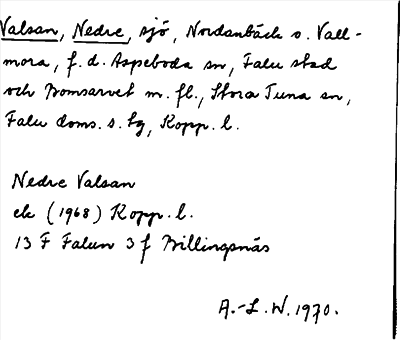 Valsan, Nedre, sjö, Nordanbäck o. Vall-
mora, f. d. Aspeboda sn, Falu stad
och Bomsarvet m. fl., Stora Tuna sn,
Falu doms. s. tg, Kopp. l.
Nedre Valsan
ek (1968) Kopp. l.
13 F Falun 3 f Billingsnäs
A.-L. W. 1970.